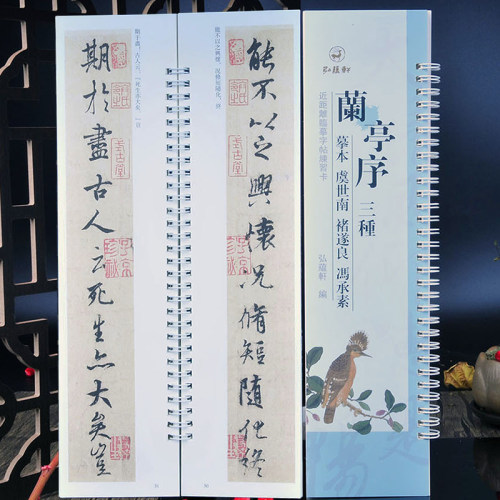 弘蘊軒
蘭亭序 三種
摹本 虞世南 褚遂良 馮承素
近距離臨摹字帖練習卡
弘蘊軒 編
能不以之興懷況脩短隨化終
期於盡古人云死生亦大矣豈